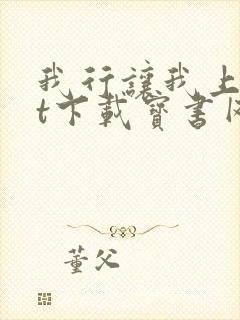 我行讓我上
t下載寶書网
董父